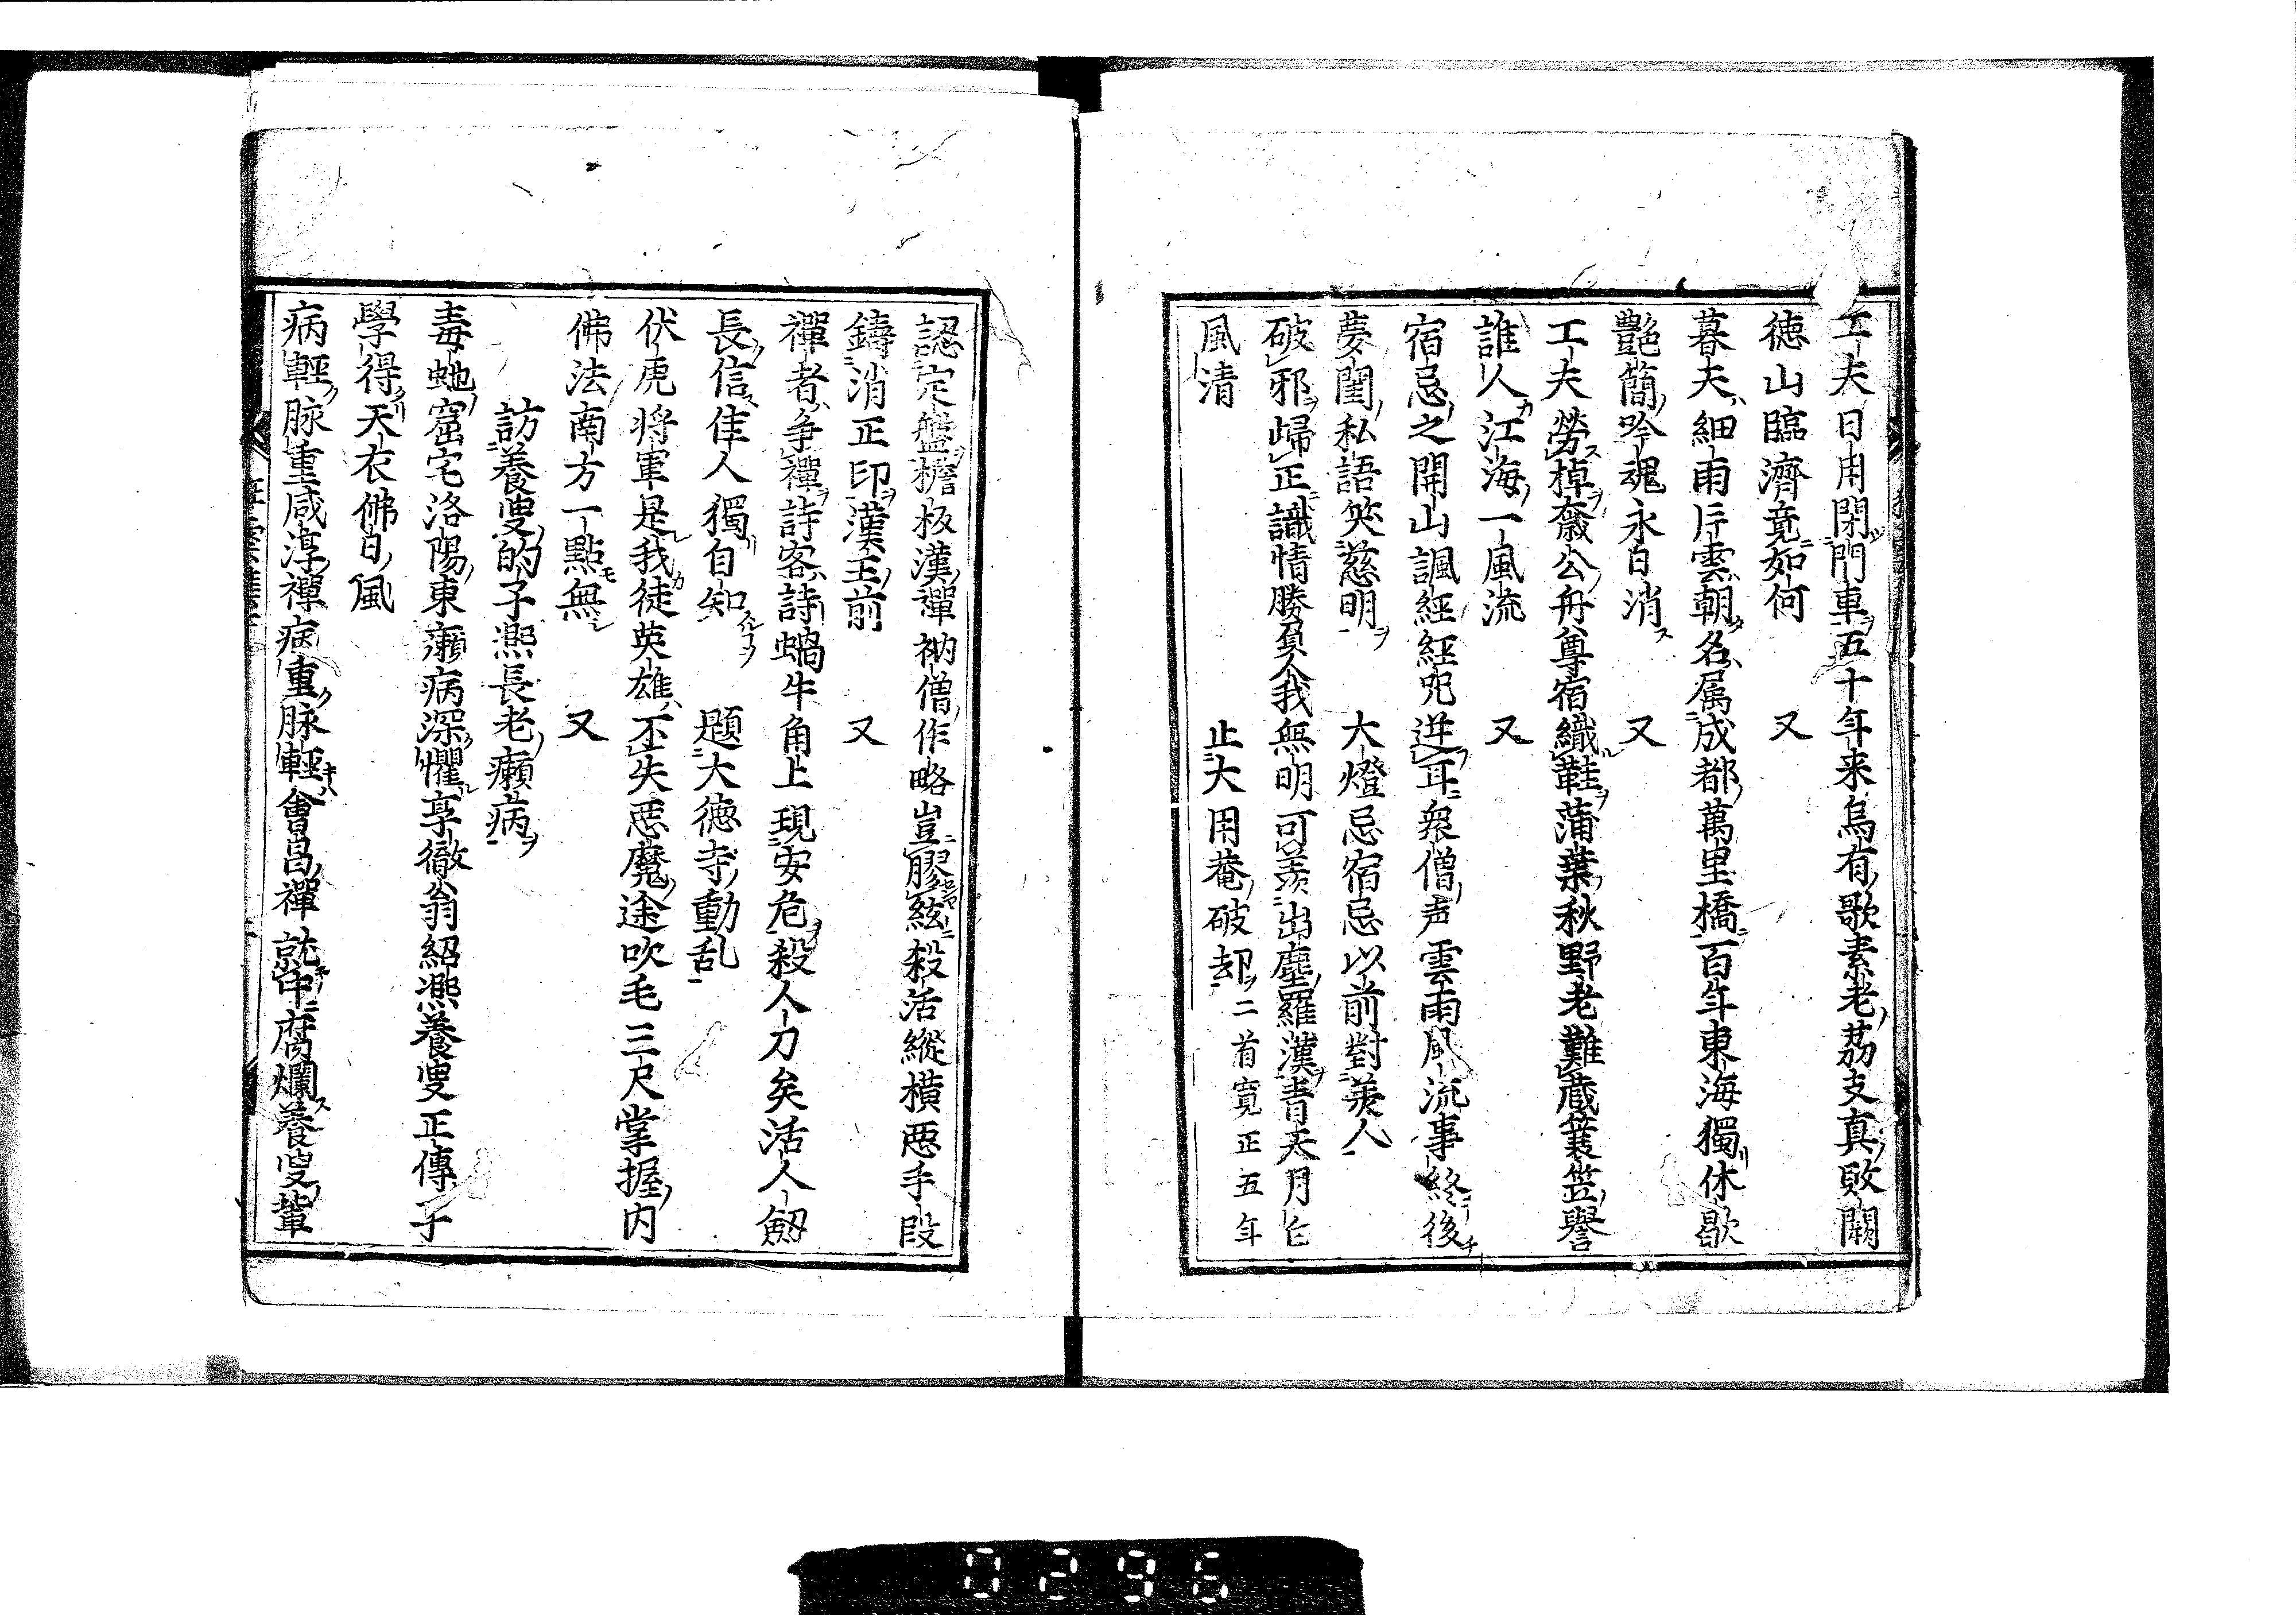 工夫日用閉門車五十年来烏有歌素老茘支真敗闕
徳山臨濟竟如何　　又
暮夫細雨片雲朝名属成都萬里橋百年東海獨休歇
艶簡吟魂永日消　　又
工夫勞棹公舟尊宿織鞋蒲葉秋野老難蔵簑笠譽
誰人江海一風流　　又
宿忌之開山諷経経咒逆耳衆僧声雲雨風流事終後
夢閨私語笑慈明　　大燈忌宿忌以前對美人
破邪歸正識情勝負人我無明可羨出塵羅漢青天月
風清　　止大用菴破却二首寛正五年
認定盤擔板漢禪衲僧作略豈膠絃殺活縱橫悪手段
鑄消正印漢王前　　又
禪者争禪詩客詩蝸牛角上現安危殺人刀矣活人劔
長信佳人獨自知　　題大徳寺動乱
伏虎将軍是我徒英雄不失悪魔途吹毛三尺掌握内
佛法南方一點無　　又
訪養叟的子凞長老癩病
毒虵窟宅洛陽東癩病深懼享徹翁紹凞養叟正傳子
學得天衣佛日風
病輕脉重咸淳禪病重脉輕會昌禪就中腐爛養叟輩
0296